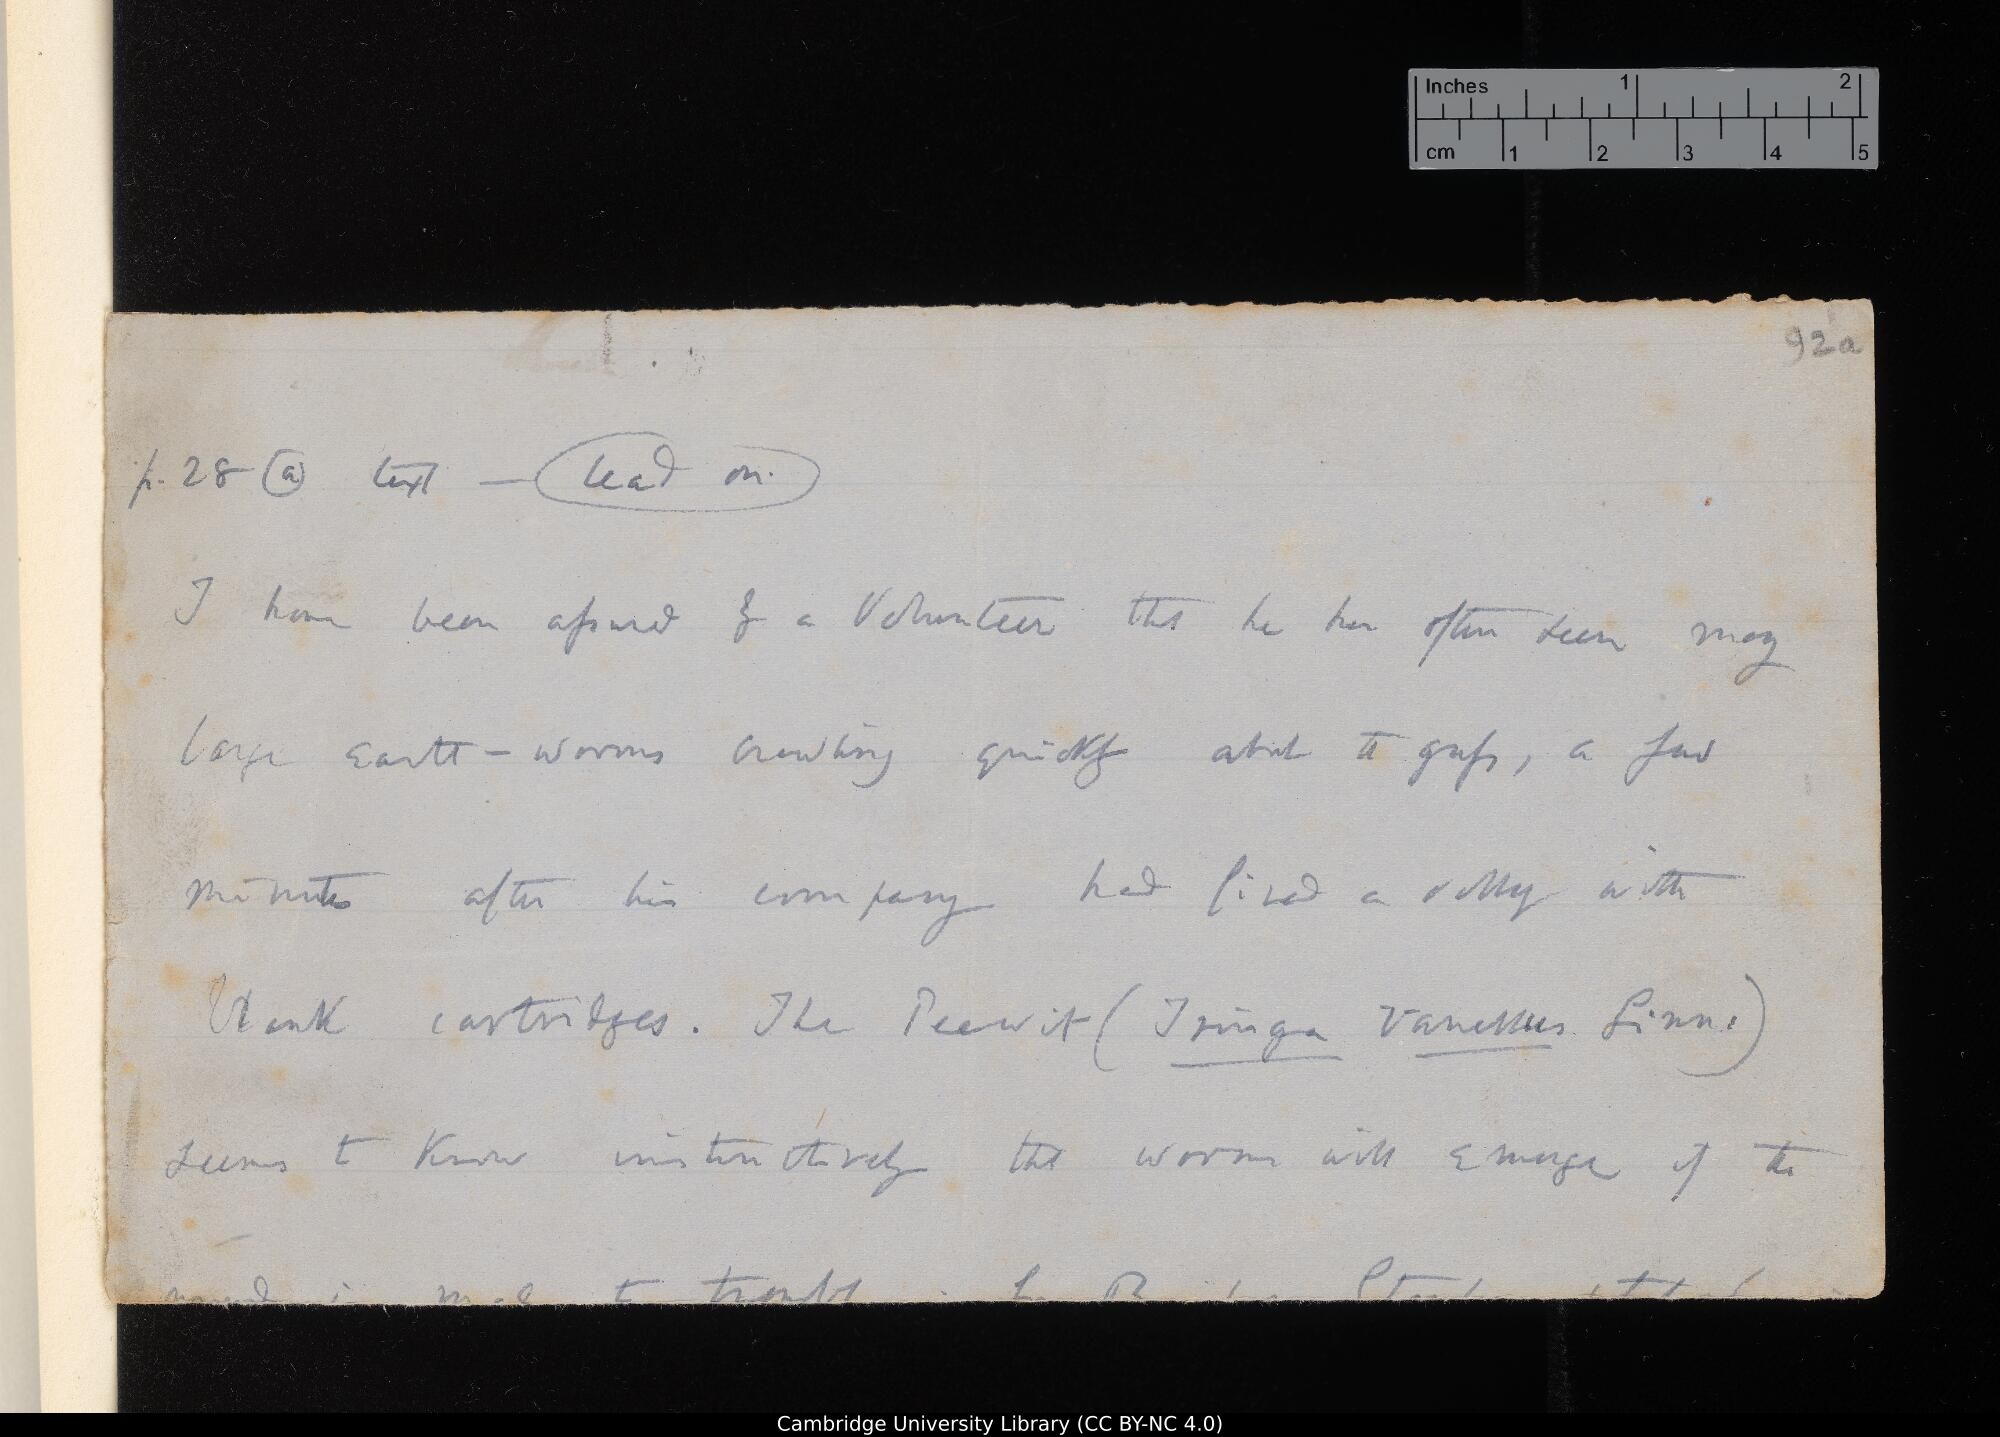 Inches 1 2
cm 1 2 3 4 5
92a
p. 28 (a) text — lead on.
I have been assured by a Volunteer that he has often seen many
large earth-worms crawling quickly about the grass, a few
minutes after his company had fired a volley with
blank cartridges. The Peewit (Tringa vanellus Linn:)
seems to know instinctively that worms will emerge if the
ground is made to tremble
Cambridge University Library (CC BY-NC 4.0)